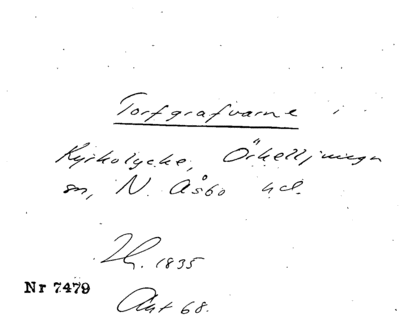 Torfgrafvarne i
Kyrkolycke, Örkelljunga
sn, N. Åsbo hd.
Lh. 1835
Akt 68.
Nr 7479